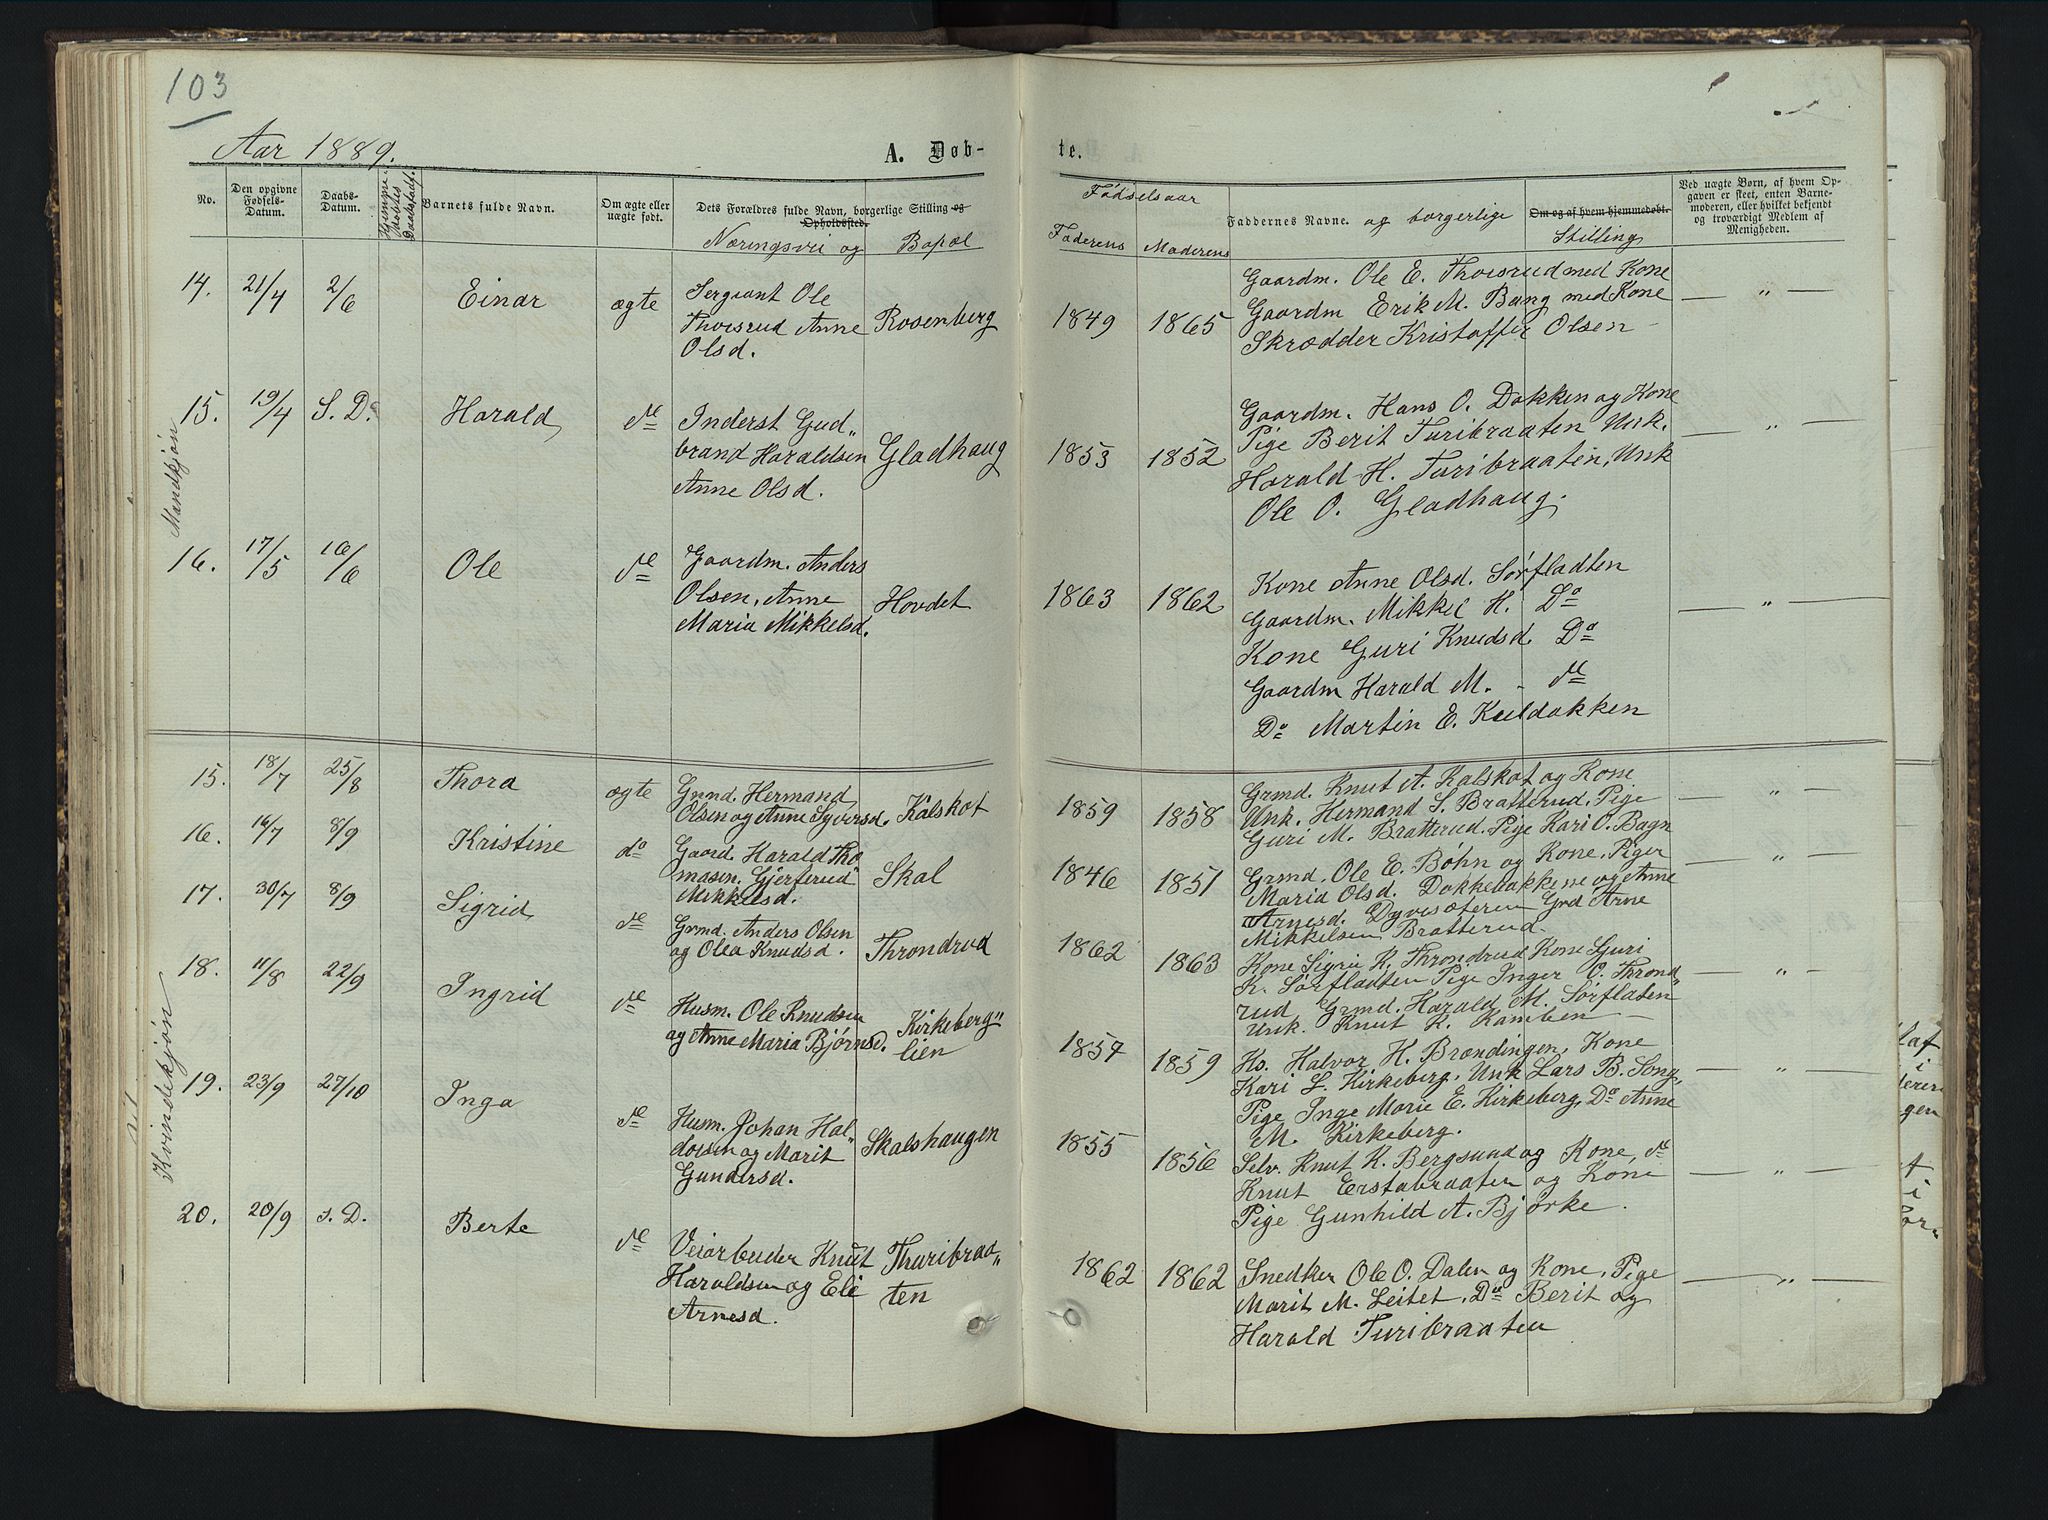 103
Aar 1889.
A. Døb-
te.
No.
Den opgivne Fødsels-Datum.
Daabs-Datum.
Hjemme-døbtes Daabsstadf.
Barnets fulde Navn.
Om ægte eller uægte født.
Dets Forældres fulde Navn, borgerlige Stilling og Opholdssted.
Næringsvei og Bopæl
Fødselsaar
Faderens
Moderens
Faddernes Navne. og borgerlige Stilling
Om og af hvem hjemmedøbt.
Ved uægte Børn, af hvem Op-
gaven er skeet, enten Barne-
moderen, eller hvilket bekjendt
og troværdigt Medlem af
Menigheden.
Mandkjøn
14. 21/4 2/6 Einar ægte
Sergiant Ole
Thoesrud Anne
Olsd.
Rosenberg
1849 1865
Gaardm. Ole E. Thoesrud med Kone
Gaardm Erik M. Bang med Kone
Skrædder Kristoffer Olsen
— " —
15. 19/4 S. D. Harald de
Inderst Gud„
brand Haraldsen
Anne Olsd.
Gladhaug
1853 1852
Gaardm. Hans O. Dokken og Kone
Pige Berit Turibraaten Unk.
Harald H. Turibraaten, Unk
Ole O. Gladhaug.
— " —
16. 17/5 16/6 Ole de
Gaardm. Anders
Olsen, Anne
Maria Mikkelsd.
Hovdet
1863 1862
Kone Anne Olsd. Sørfladten
Gaardm. Mikkel H. Do
Kone Guri Knudsd. Do
Gaardm Harald M. - de
Do Martin E. Kuldakken
— " —
Kvindekjøn
15. 18/7 25/8 Thora ægte
Grmd. Hermand
Olsen og Anne Syversd.
Kalskot
1859 1858
Grmd. Knut A. Kalskot og Kone
Unk. Hermand S. Bratterud, Pige
Guri M. Bratterud. Pige Kari O. Bagn
— " —
16. 16/7 8/9 Kristine do
Gaard. Harald Tho
masen. Gjerferud
Mikkelsd.
Skal
1846 1851
Grmd. Ole E. Bøhn og Kone, Piger
Maria Olsd. Dokkebakkene og Anne
Arnesd. Dyvesæteren Grd Arne
Mikkelsen Bratterud.
— " —
17. 30/7 8/9 Sigrid de
Grmd. Anders Olsen
og Olea Knudsd.
Throndrud
1862 1863
Kone Sigrie K. Throndrud Kone Guri
K. Sørfladten Pige Inger O. Thrond„
rud Grmd. Harald M. Sørflaten
Unk. Knut K. Kamben
— " —
18. 11/8 22/9 Ingrid de
Husm. Ole Knudsen
og Anne Maria Bjørnsd.
Kirkeberg„
lien
1857 1859
Hs. Halvor H. Brændingen, Kone
Kari L. Kirkeberg, Unk Lars B. Song,
Pige Inge Marie E. Kirkeberg, Do Anne
M. Kirkeberg.
— " —
19. 23/9 27/10 Inga de
Husm. Johan Hal„
dorsen og Marit
Gundersd.
Skalshaugen
1855 1856
Selv. Knut K. Bergsund og Kone, de
Knut Erstabraaten og Kone
Pige Gunhild A. Bjørke.
— " —
20. 20/9 s. D. Berte de
Veiarbeider Knut
Haraldsen og Eli
Arnesd.
Thuribraa„
ten
1862 1862
Snedker Ole O. Dalen og Kone, Pige
Marit M. Leitet, Do Berit og
Harald Turibraaten
— " —